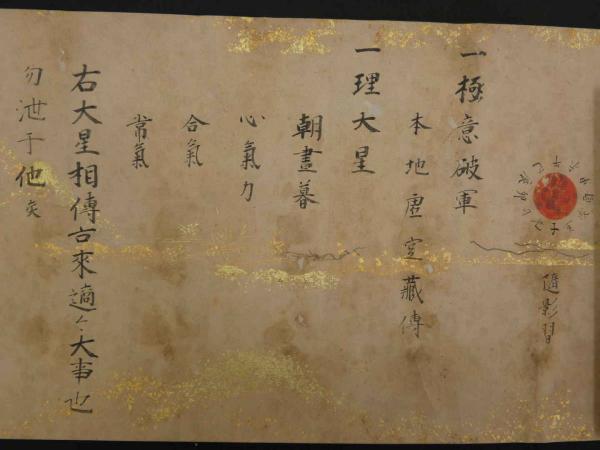 隨影習
一極意破軍
本地虚空藏傳
一理大星
朝晝暮
心氣力
合氣
常氣
右大星相傳古來適々大事也
勿泄于他矣